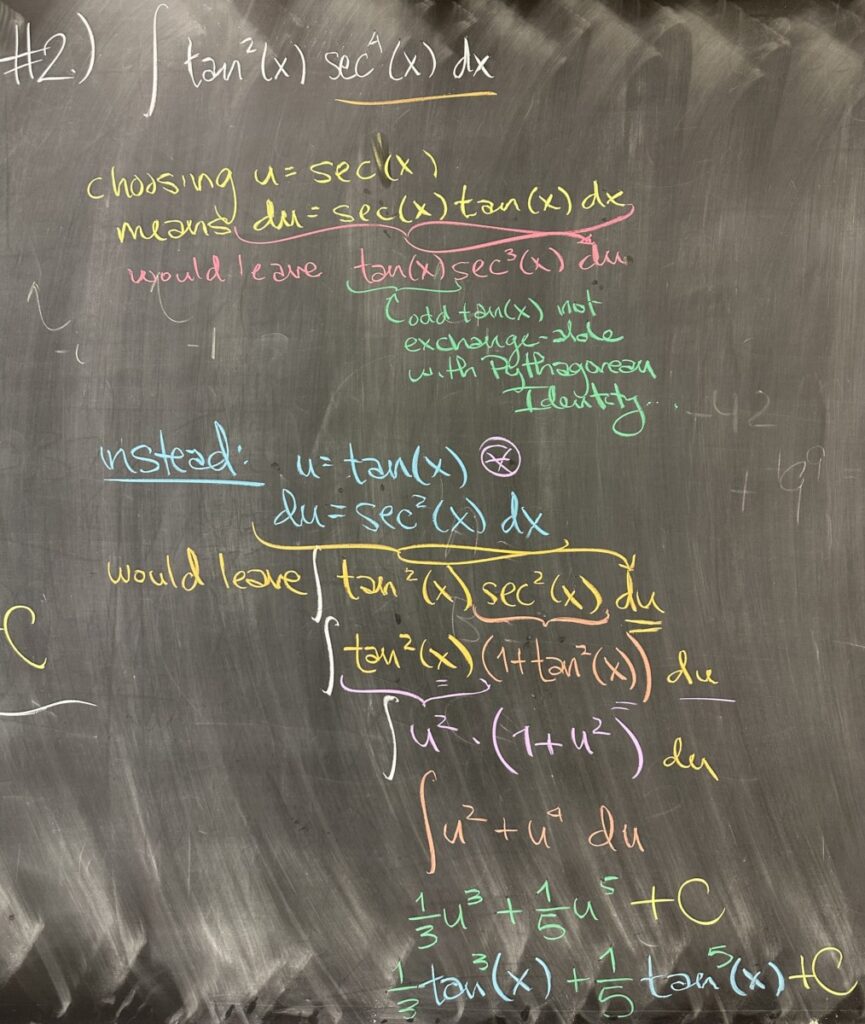 #2.) ∫ tan²(x) sec⁴(x) dx
choosing u = sec(x)
means du = sec(x) tan(x) dx
would leave tan(x) sec³(x) du
odd tan(x) not
exchange-able
with Pythagorean
Identity...
-1
-42
instead: u = tan(x) ⊛
+ 9
du = sec²(x) dx
would leave ∫ tan²(x) sec²(x) du
C
∫ tan²(x) (1+tan²(x)) du
∫ u² · (1+u²) du
∫ u² + u⁴ du
1/3 u³ + 1/5 u⁵ + C
1/3 tan³(x) + 1/5 tan⁵(x) + C